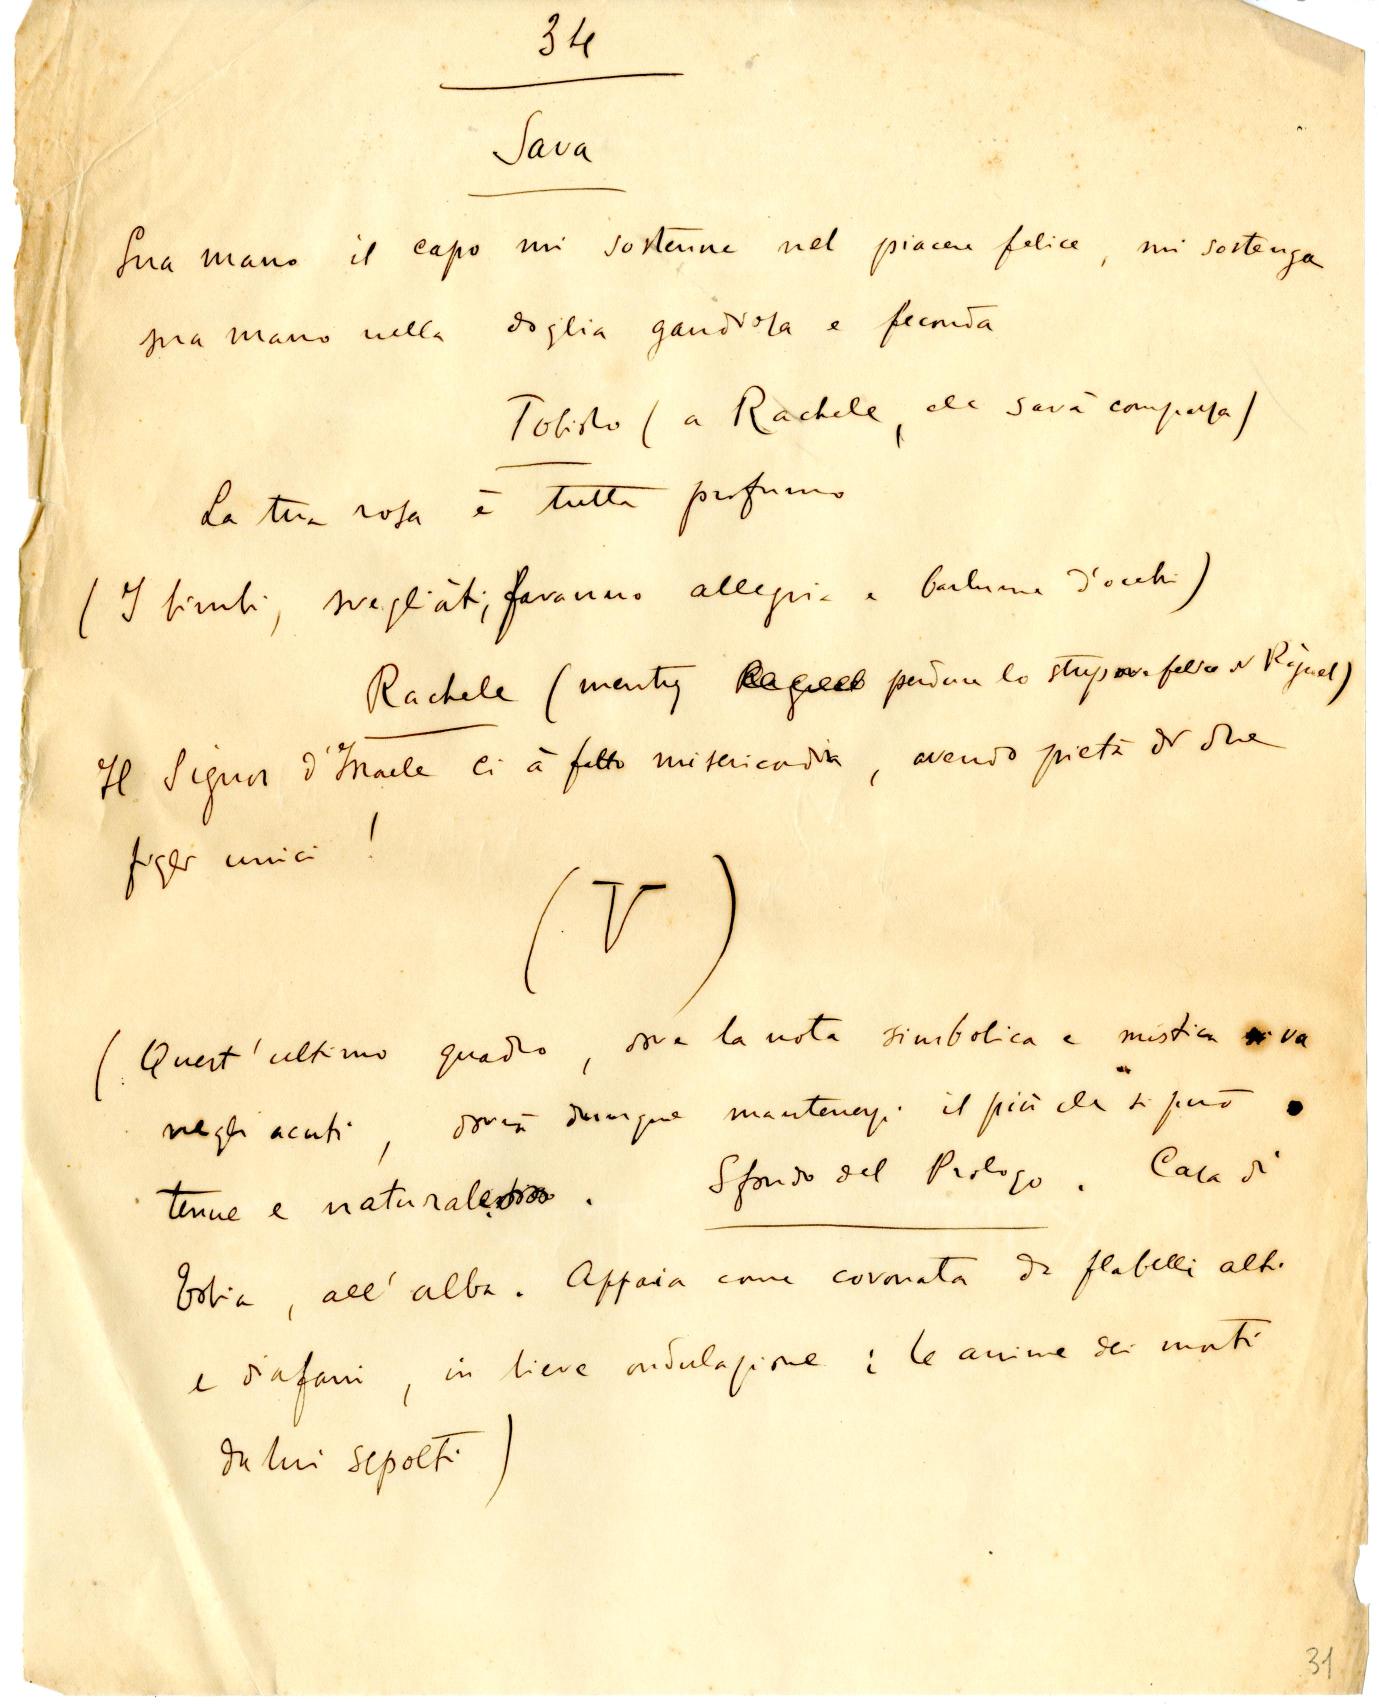 34
Sara
Sua mano il capo mi sostenne nel piacere felice, mi sostenga
sua mano nella doglia gaudiosa e feconda
Tobiolo (a Rachele, che sarà comparsa)
La tua rosa è tutta profumo
(I bimbi, svegliati, faranno allegria e barlume d'occhi)
Rachele (mentre perdura lo stupore felice di Raguel)
Il Signor d'Israele ci à fatto misericordia, avendo pietà di due
figli unici!
(V)
(Quest'ultimo quadro, ove la nota simbolica e mistica va
negli acuti, dovrà dunque mantenersi il più che si può
tenue e naturale. Sfondo del Prologo. Casa di
Tobia, all'alba. Appaia come coronata da flabelli alti
e diafani, in lieve ondulazione: le anime dei morti
da lui sepolti)
31